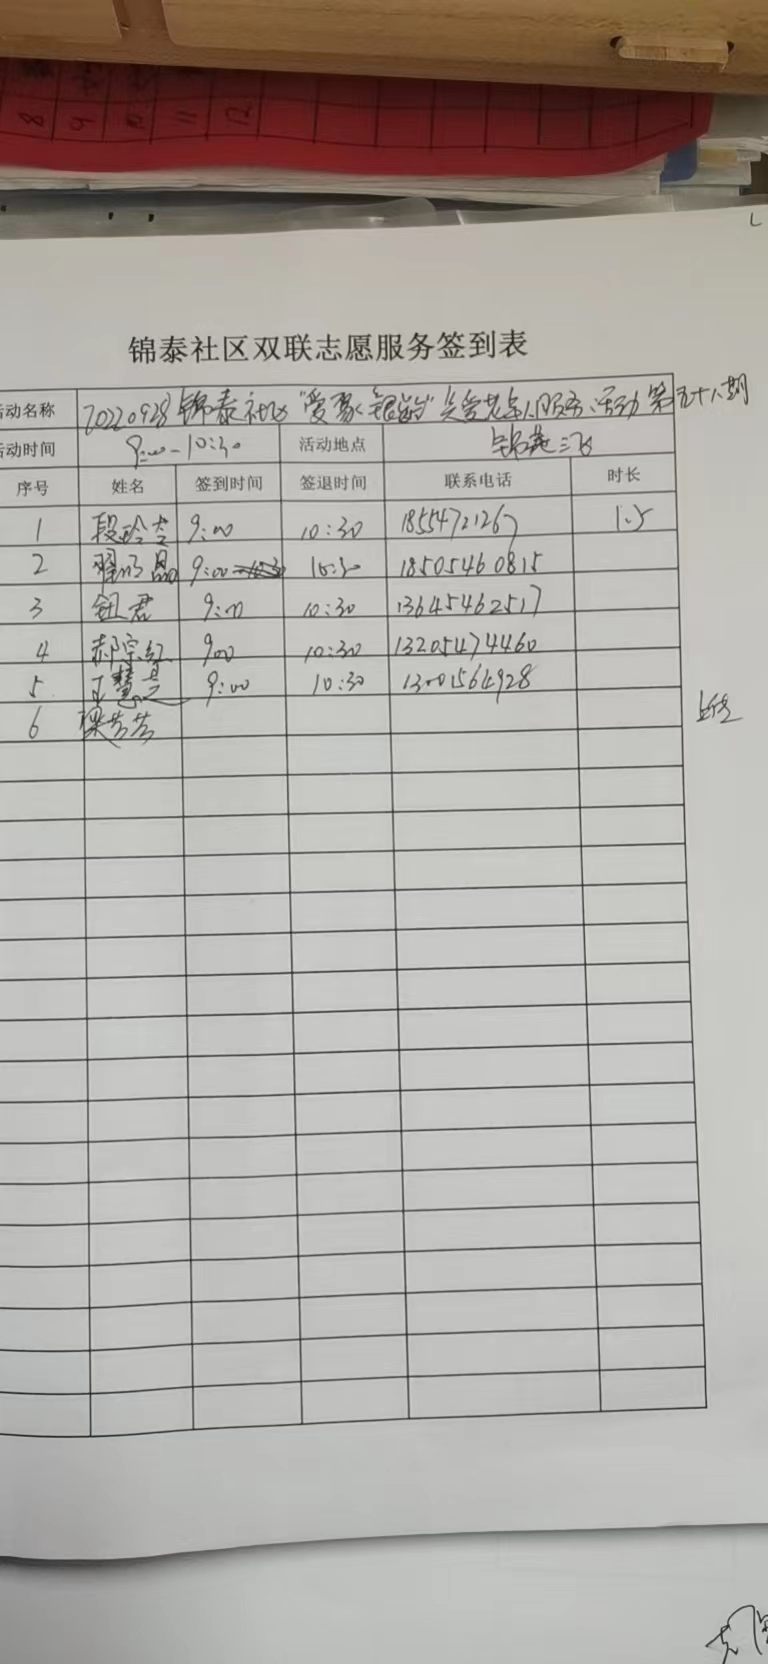 8 9 10 11 12
锦泰社区双联志愿服务签到表
活动名称 20220928锦泰社区"爱聚银龄"关爱老年人服务活动第五十八期
活动时间 9:00-10:30 活动地点 锦苑三区
序号 姓名 签到时间 签退时间 联系电话 时长
1 段玲 9:00 10:30 18554721267 1.5
2 晶 9:00 10:30 18505460815
3 钮君 9:00 10:30 13645462517
4 郝宗红 900 10:30 13205474460
5 王慧 9:00 10:30 13001564928
6 梁芳芳